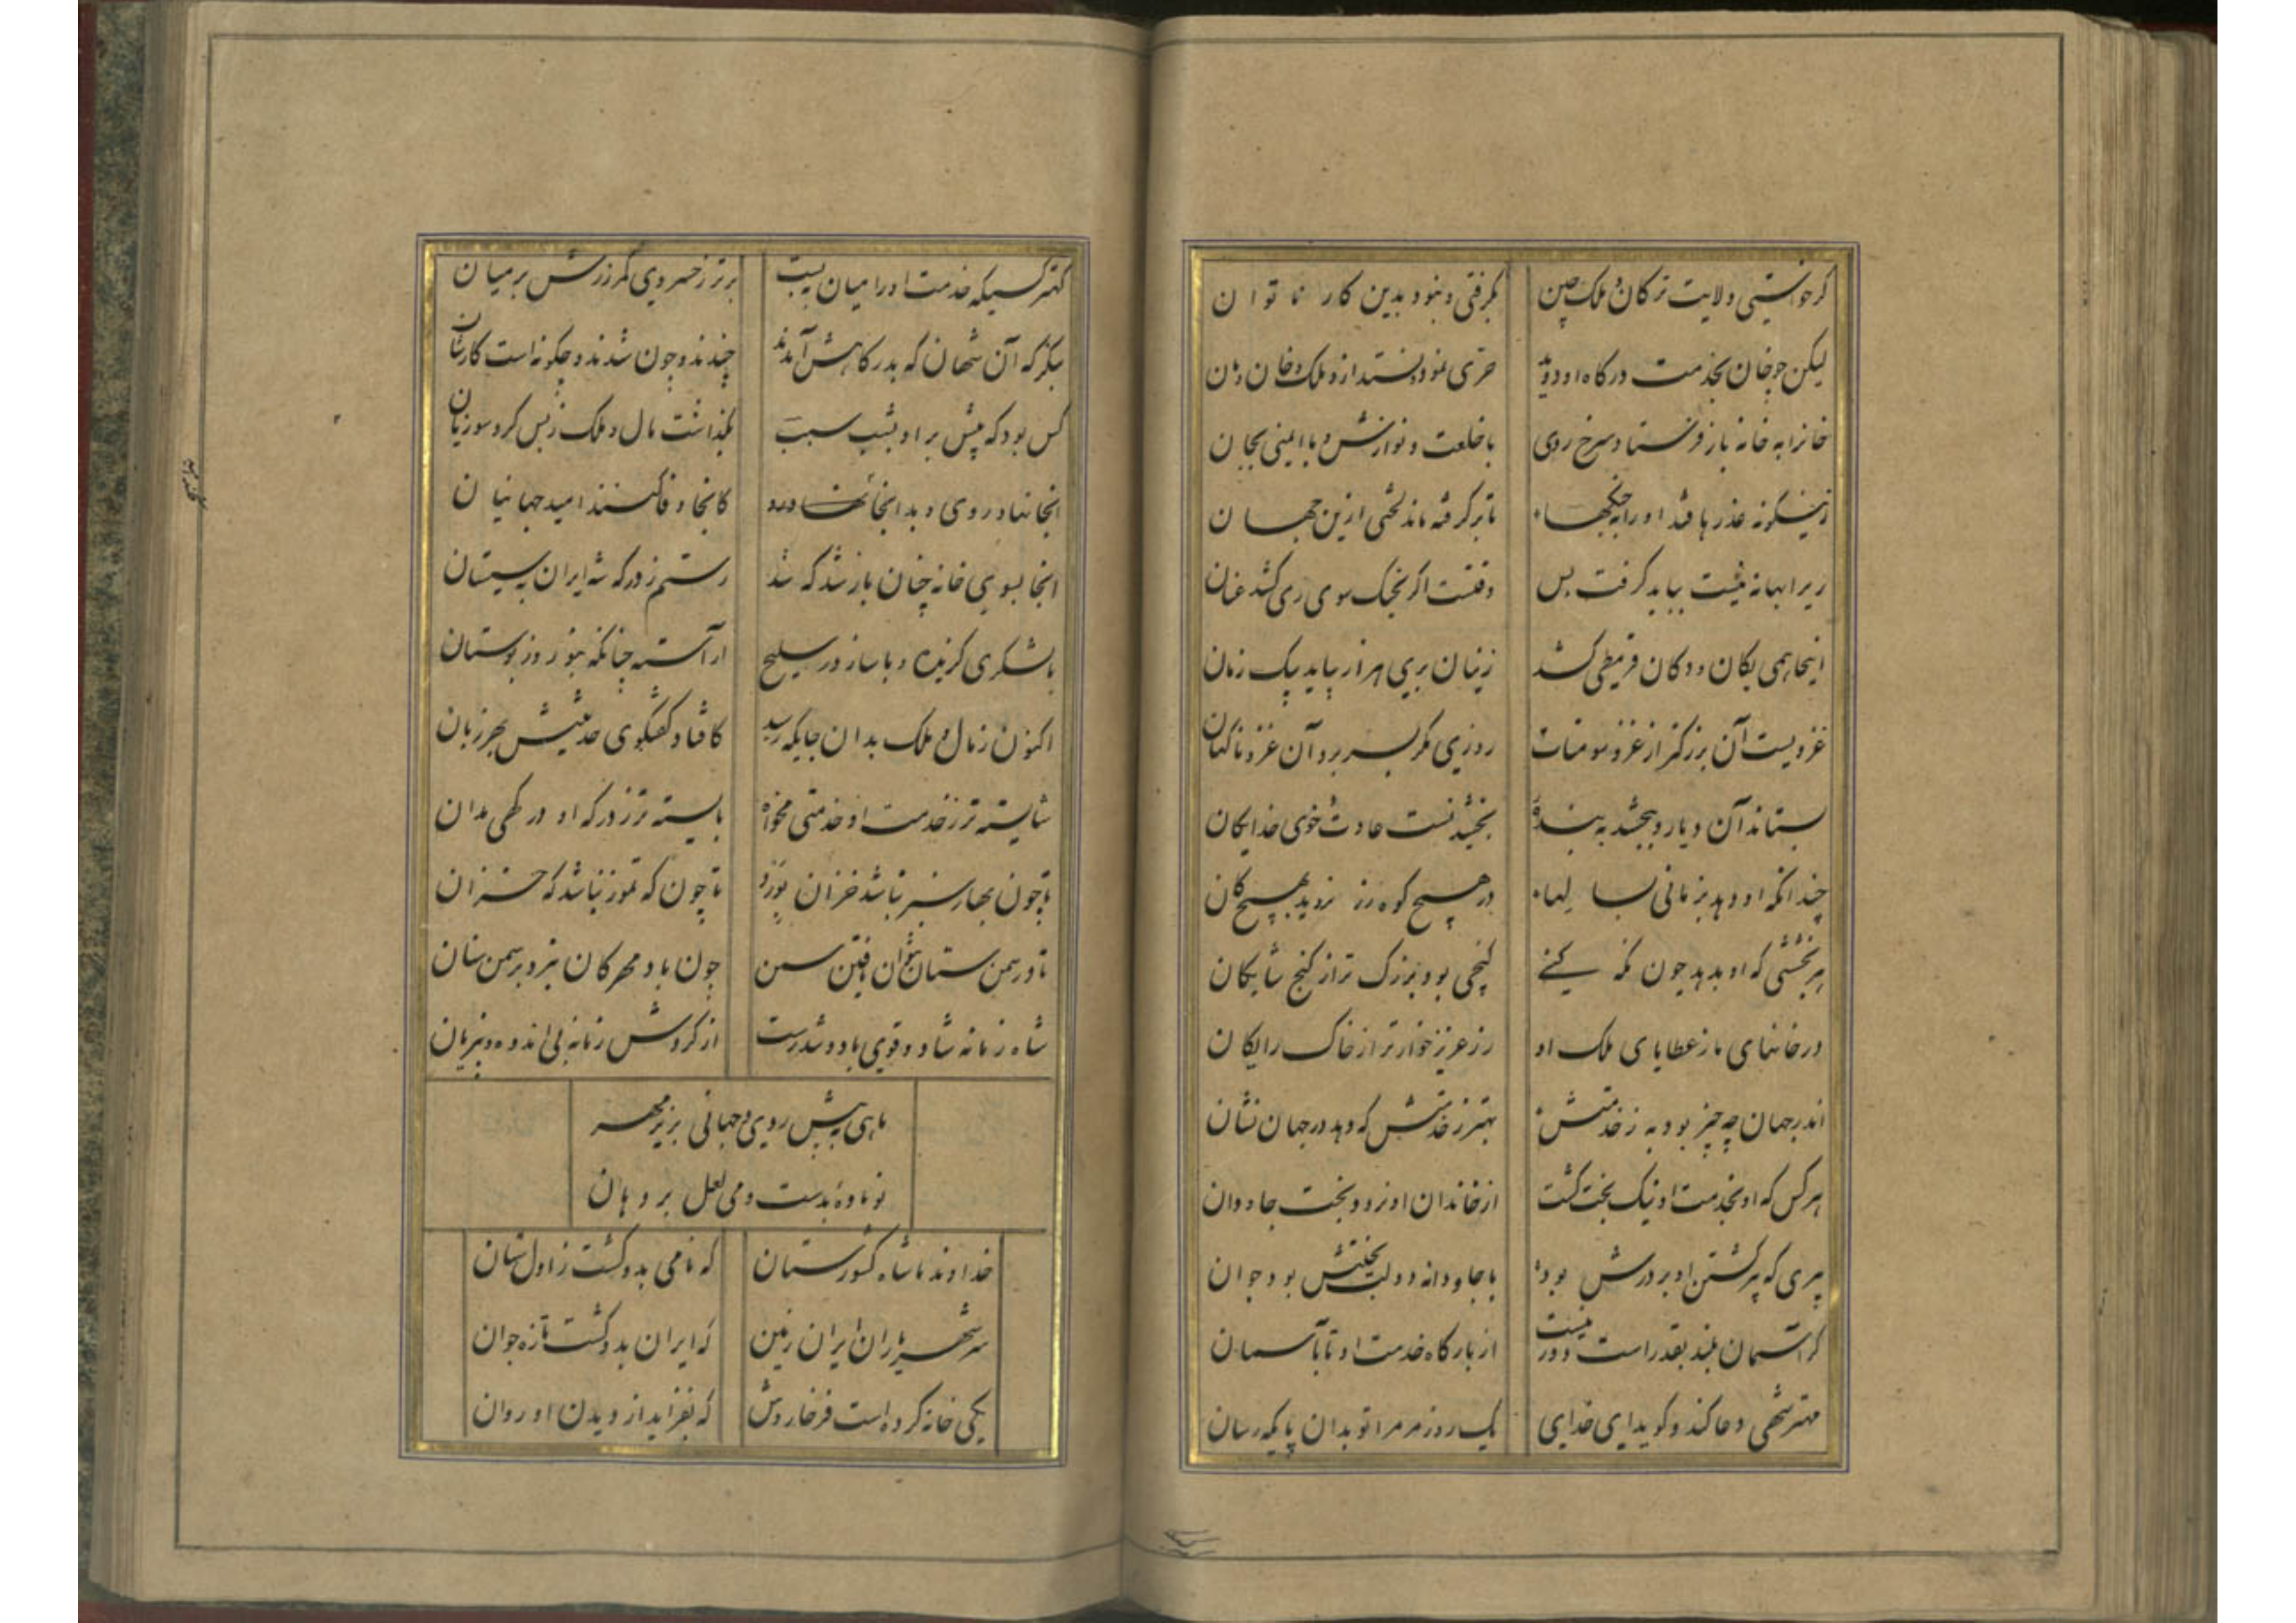 گر خواستی ولایت ترکان و ملک چین
بگرفتی و نبود بدین کار ناتوان
لیکن چو خان بخدمت درگاه او دوید
حری نمود و نستد ازو ملک و خان و مان
خانرا به خانه باز فرستاد سرخ روی
با خلعت و نوازش و با ایمنی بجان
زینگونه عذرها فتد او را بجنگها
تا برگرفته ماند لختی ازین جهان
ری را بهانه نیست بباید گرفت پس
وقتست اگر بجنگ سوی ری کشد عنان
اینجا همی یکان و دوکان قرمطی کشد
زینان بری هزار بیابد بیک زمان
غزویست آن بزرگتر از غزو سومنات
روزی مگر بسر برد آن غزو ناگهان
بستاند آن دیار و ببخشد به بنده
بخشیدنست عادت و خوی خدایگان
چندانکه او دهد بزمانی بسالها
در هیچ کوه زر نروید بهیچ کان
هر بخششی که او بدهد چون نگه کنی
گنجی بود بزرگ تر از گنج شایگان
در خانهای ما ز عطایای ملک او
زر عزیز خوارتر از خاک رایگان
اندر جهان چه چیز بود به ز خدمتش
بهتر ز خدمتش که دهد در جهان نشان
هر کس که او بخدمت او نیک بخت گشت
از خاندان او نرود بخت جاودان
پیری که پیر گشتن او بر درش بود
با جاودانه دولت و بختش بود جوان
گر آسمان بلند بقدر است دور نیست
از بارگاه خدمت او تا بآسمان
مهتر شهی دعا کند و گوید ای خدای
یک روز مر مرا تو بدان پایگه رسان
کهتر کسیکه خدمت او را میان ببست
برتر ز خسروی کمر زرش بر میان
بنگر که آن شهان که بدرگاهش آمدند
چندند و چون شدند و چگونه است کارشان
کس بود که پیش بر او بشب سبب
بگذاشت مال و ملک ز بس کرد سو زیان
اینجا نهاد روی و بد اینجا نهاده
کانجا وفا کنند امید جهانیان
اینجا بسوی خانه چنان باز شد که شد
رستم ز درگه شه ایران به سیستان
با لشکری گزیده و با ساز و در سلیح
آراسته چنانکه بنوروز بوستان
اکنون ز مال و ملک بدان جایگه رسید
کافتاد گفتگوی حدیثش بهر زبان
شایسته تر ز خدمت او خدمتی مخواه
بایسته تر ز درگه او درگهی مدان
تا چون بهار سبز نباشد خزان زرد
تا چون که تموز نباشد که خزان
تا در سمن ستان نتوان یافتن سمن
چون باد مهرگان بزد بر سمن ستان
شاه زمانه شاد و قوی باد و تندرست
از گردش زمانه بی اندوه و بی زیان
ماهی به پیش روی و جهانی بزیر مهر
نو باوه بدست و می لعل بر دهان
خداوند ما شاه کشورستان
که نامی بدو گشت زاولستان
سر شهریاران ایران زمین
که ایران بدو گشت تازه جوان
یکی خانه کرده است فرخاروش
که بفزاید از دیدن او روان